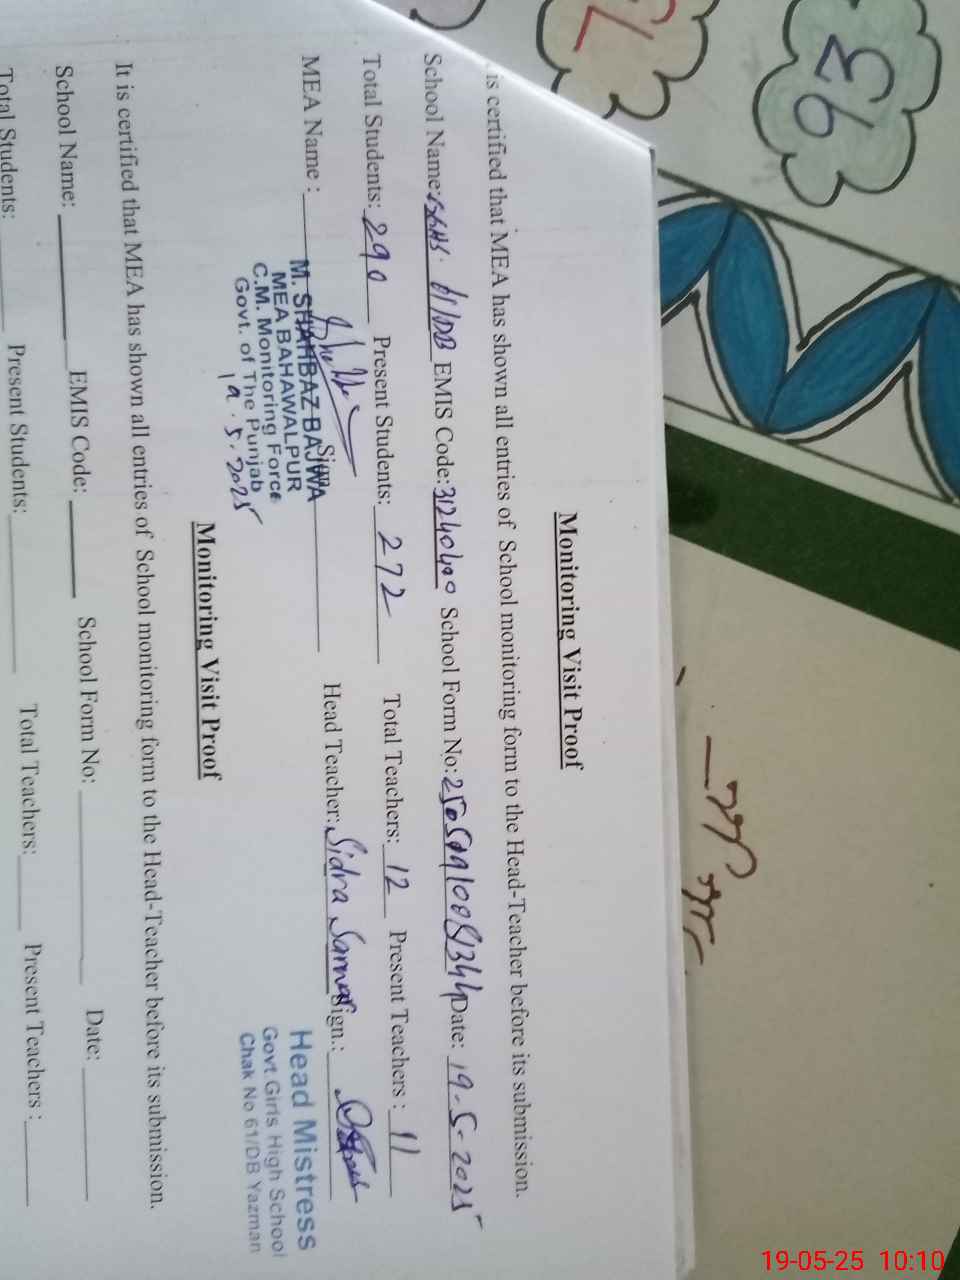 93
Monitoring Visit Proof
is certified that MEA has shown all entries of School monitoring form to the Head-Teacher before its submission.
School Name: GGHS. 61/DB EMIS Code: 31240400 School Form No: Date: 19-5-2025
Total Students: 290 Present Students: 272 Total Teachers: 12 Present Teachers: 11
MEA Name: Sign Head Teacher: Sidra Sarwar Sign.:
M. SHAHBAZ BAJWA
MEA BAHAWALPUR
C.M. Monitoring Force
Govt. of The Punjab
19.5.2025
Head Mistress
Govt Girls High School
Chak No 61/DB Yazman
Monitoring Visit Proof
It is certified that MEA has shown all entries of School monitoring form to the Head-Teacher before its submission.
School Name: EMIS Code: School Form No: Date:
Total Students: Present Students: Total Teachers: Present Teachers:
19-05-25 10:10